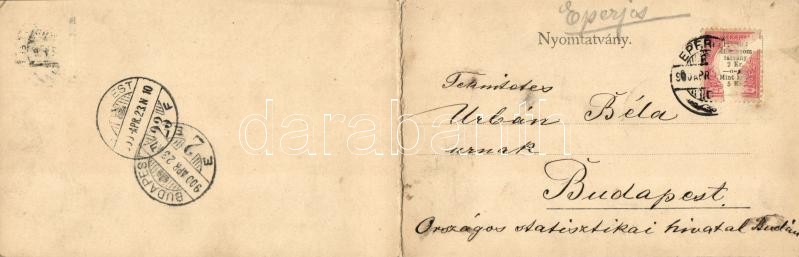 Eperjes
Nyomtatvány.
EPER
900 APR
2 Kr.
5 K
Tekintetes
Urbán Béla
urnak
Budapest.
Országos statisztikai hivatal Budán
EST
900 APR. 23. N 10
F
BUDAPEST
900 APR 23
E
darabanth